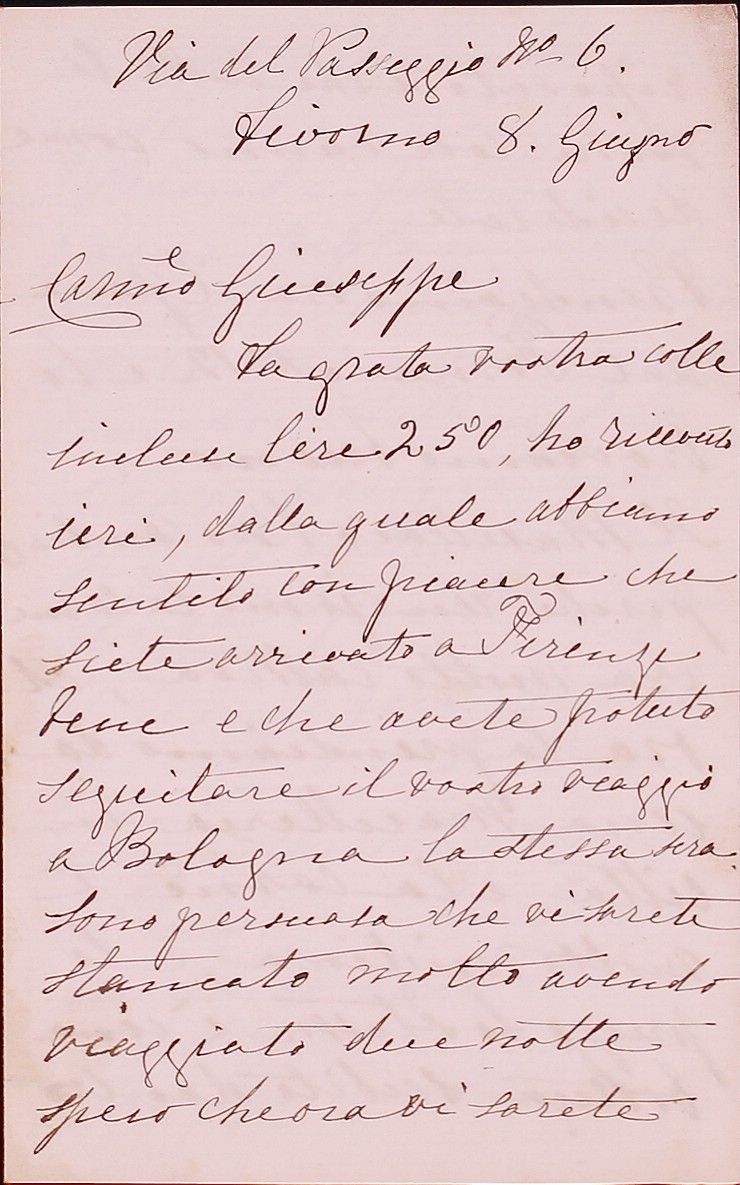 Via del Passeggio No 6.
Livorno 8. Giugno
Carmo Giuseppe
La grata vostra colle
incluse lire 250, ho ricevuto
ieri, dalla quale abbiamo
sentito con piacere che
siete arrivato a Firenze
bene e che avete potuto
seguitare il vostro viaggio
a Bologna la stessa sera.
sono persuasa che vi sarete
stancato molto avendo
viaggiato due notte
spero che ora vi sarete